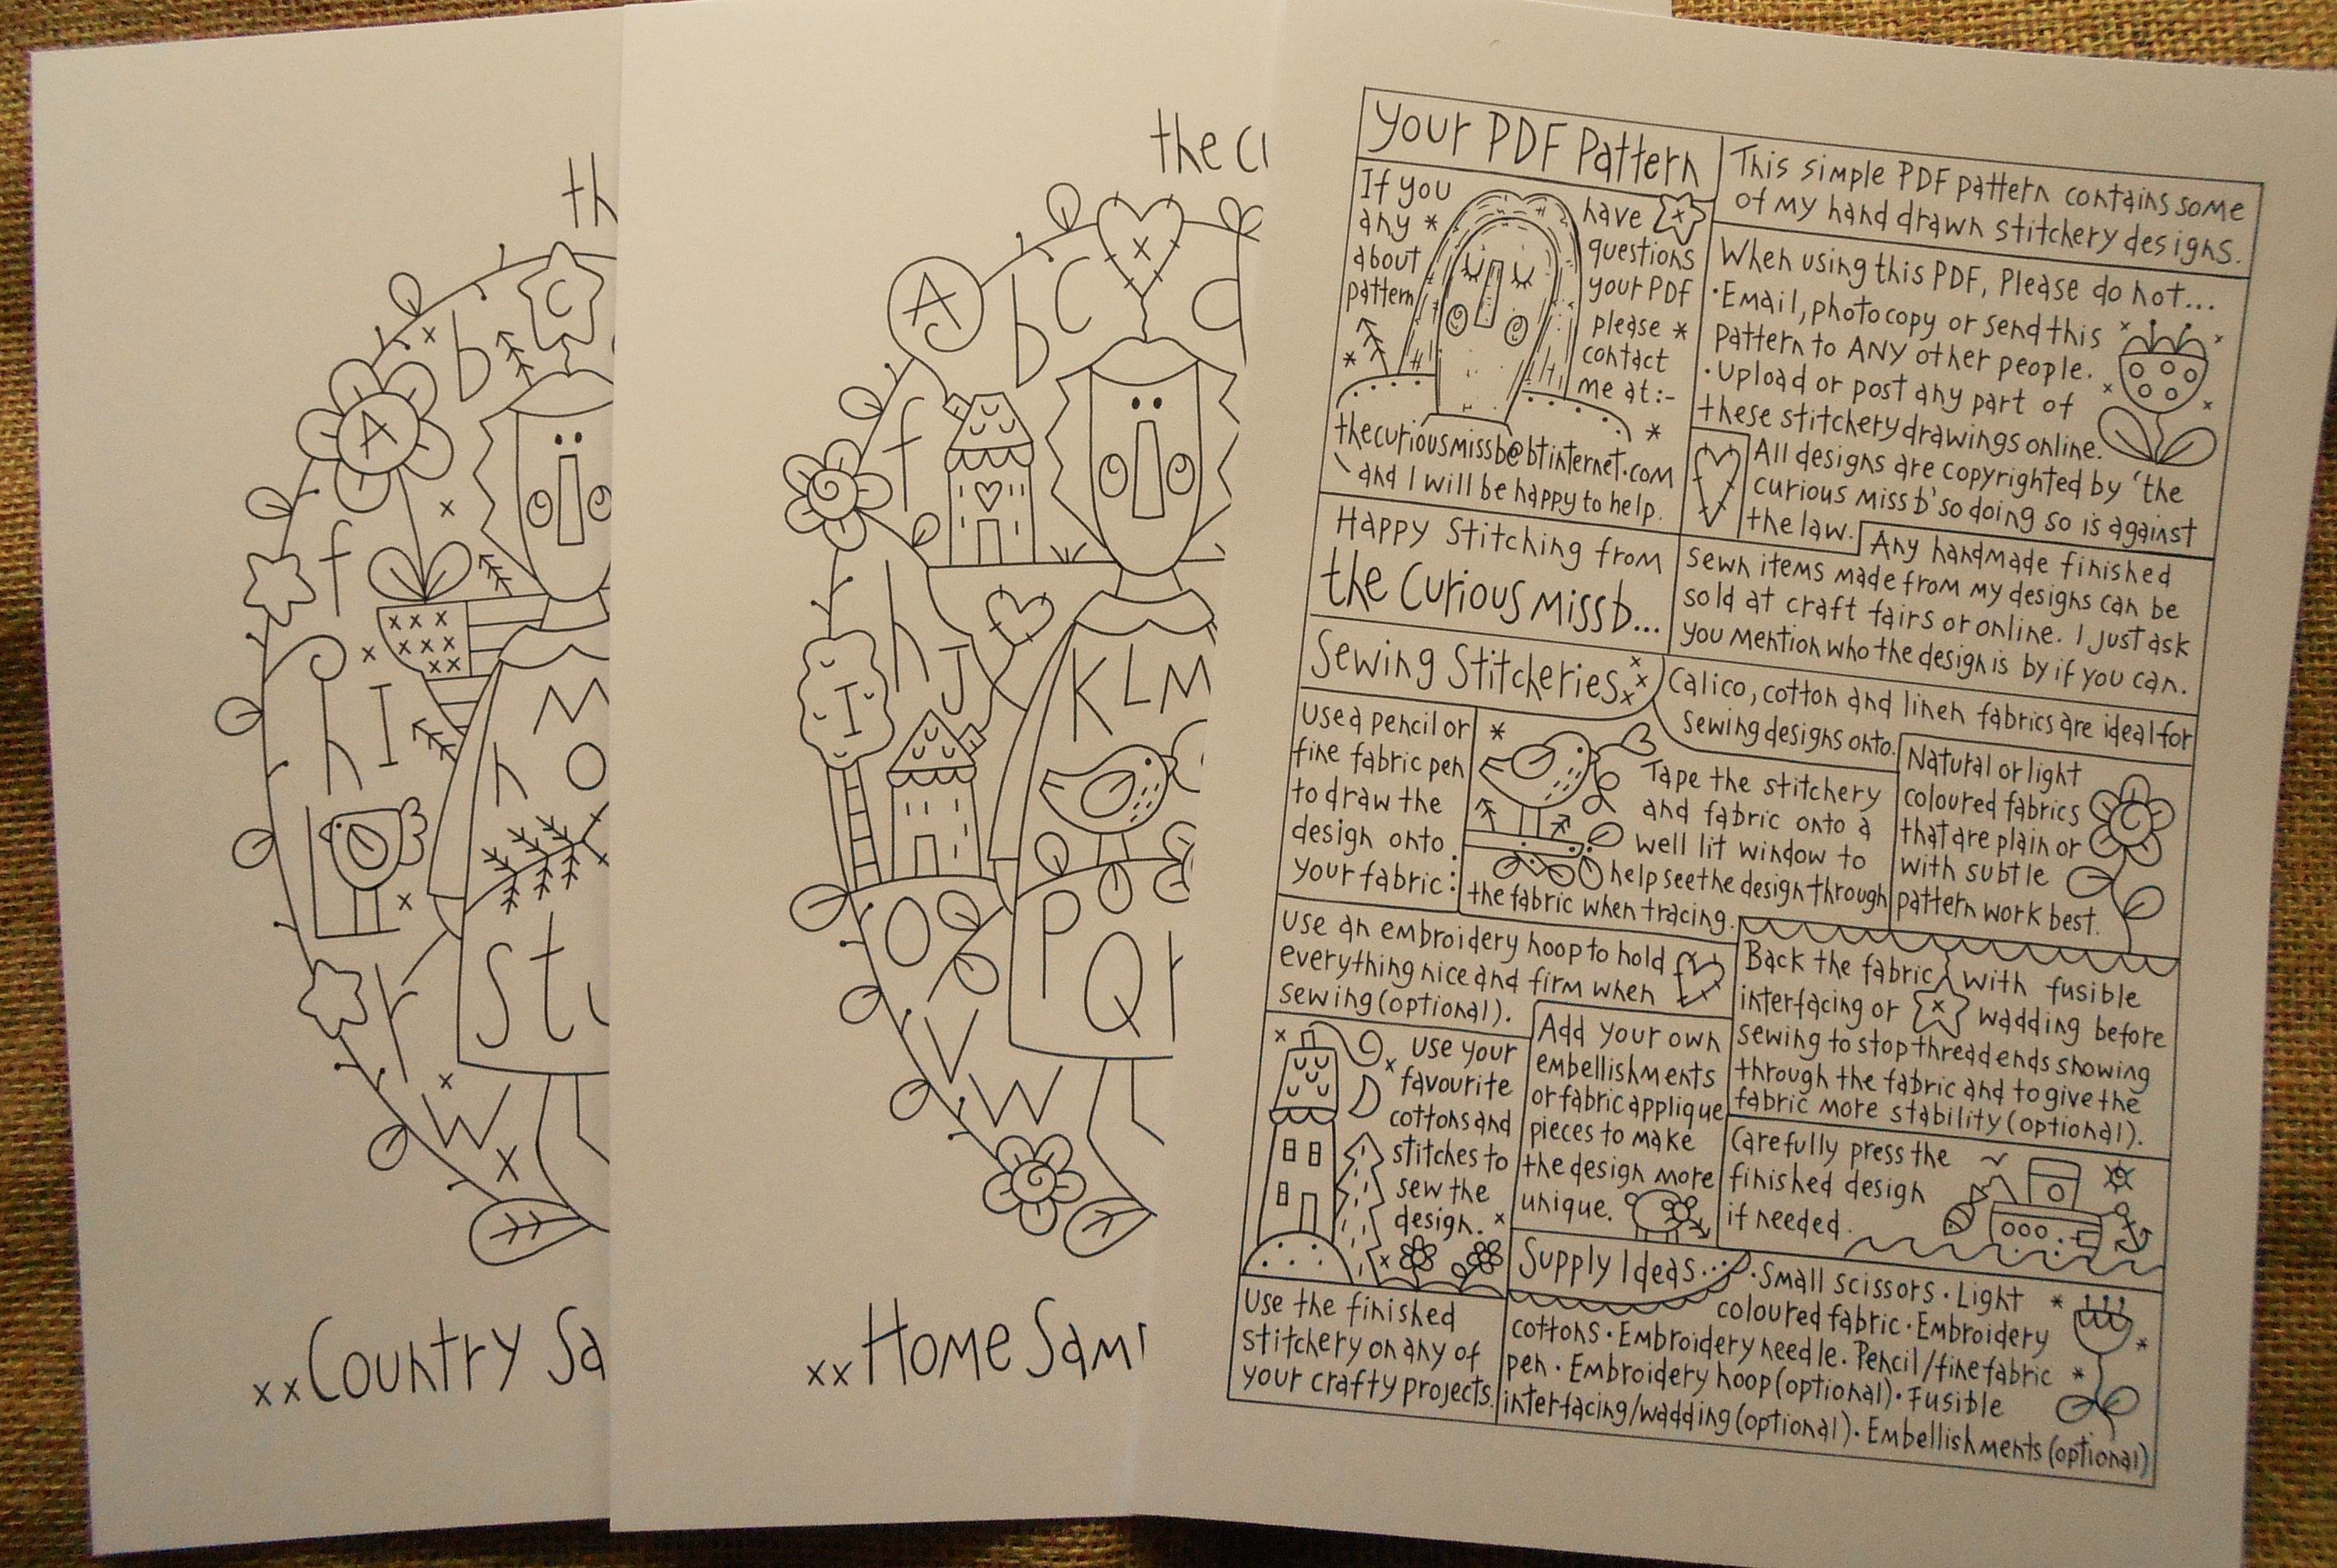 th
C
b
A
f
h I
M
n O
r
St
W
X
xxCountry Sa
the cu
A
b C
d
f
h
I
J
KLM
O
P
Q r
V
W
xxHome Sam
Your PDF Pattern
If you have
any * questions
about your PDF
pattern please *
contact
me at:-
thecuriousmissb@btinternet.com
and I will be happy to help.
Happy Stitching from
the Curious Miss b...
This simple PDF pattern contains some
of my hand drawn stitchery designs.
When using this PDF, Please do not...
·Email, photocopy or send this
Pattern to ANY other people.
·Upload or post any part of
these stitchery drawings online.
All designs are copyrighted by 'the
curious miss b' so doing so is against
the law.
Any handmade finished
sewn items made from my designs can be
sold at craft fairs or online. I just ask
you mention who the design is by if you can.
Sewing Stitcheries xxx
Calico, cotton and linen fabrics are ideal for
sewing designs onto.
Use a pencil or
fine fabric pen
to draw the
design onto
your fabric:
Tape the stitchery
and fabric onto a
well lit window to
help see the design through
the fabric when tracing.
Natural or light
coloured fabrics
that are plain or
with subtle
pattern work best.
Use an embroidery hoop to hold
everything nice and firm when
sewing (optional).
Back the fabric with fusible
interfacing or wadding before
sewing to stop thread ends showing
through the fabric and to give the
fabric more stability (optional).
Use your
favourite
cottons and
stitches to
sew the
design.
Add your own
embellishments
or fabric applique
pieces to make
the design more
unique.
Carefully press the
finished design
if needed.
Use the finished
stitchery on any of
your crafty projects.
Supply Ideas...
·Small scissors·Light
coloured fabric·Embroidery
cottons·Embroidery needle·Pencil/fine fabric
pen·Embroidery hoop (optional)·Fusible
interfacing/wadding (optional)·Embellishments (optional)